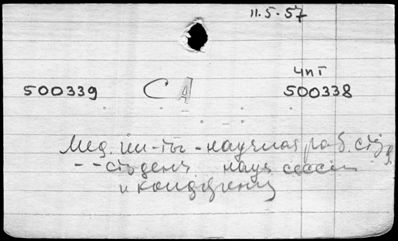 11.5.57
чит
500339 СА 500338
Мед. ин-ты - научная раб. студ.
-- студенч науч сессии
и конференц